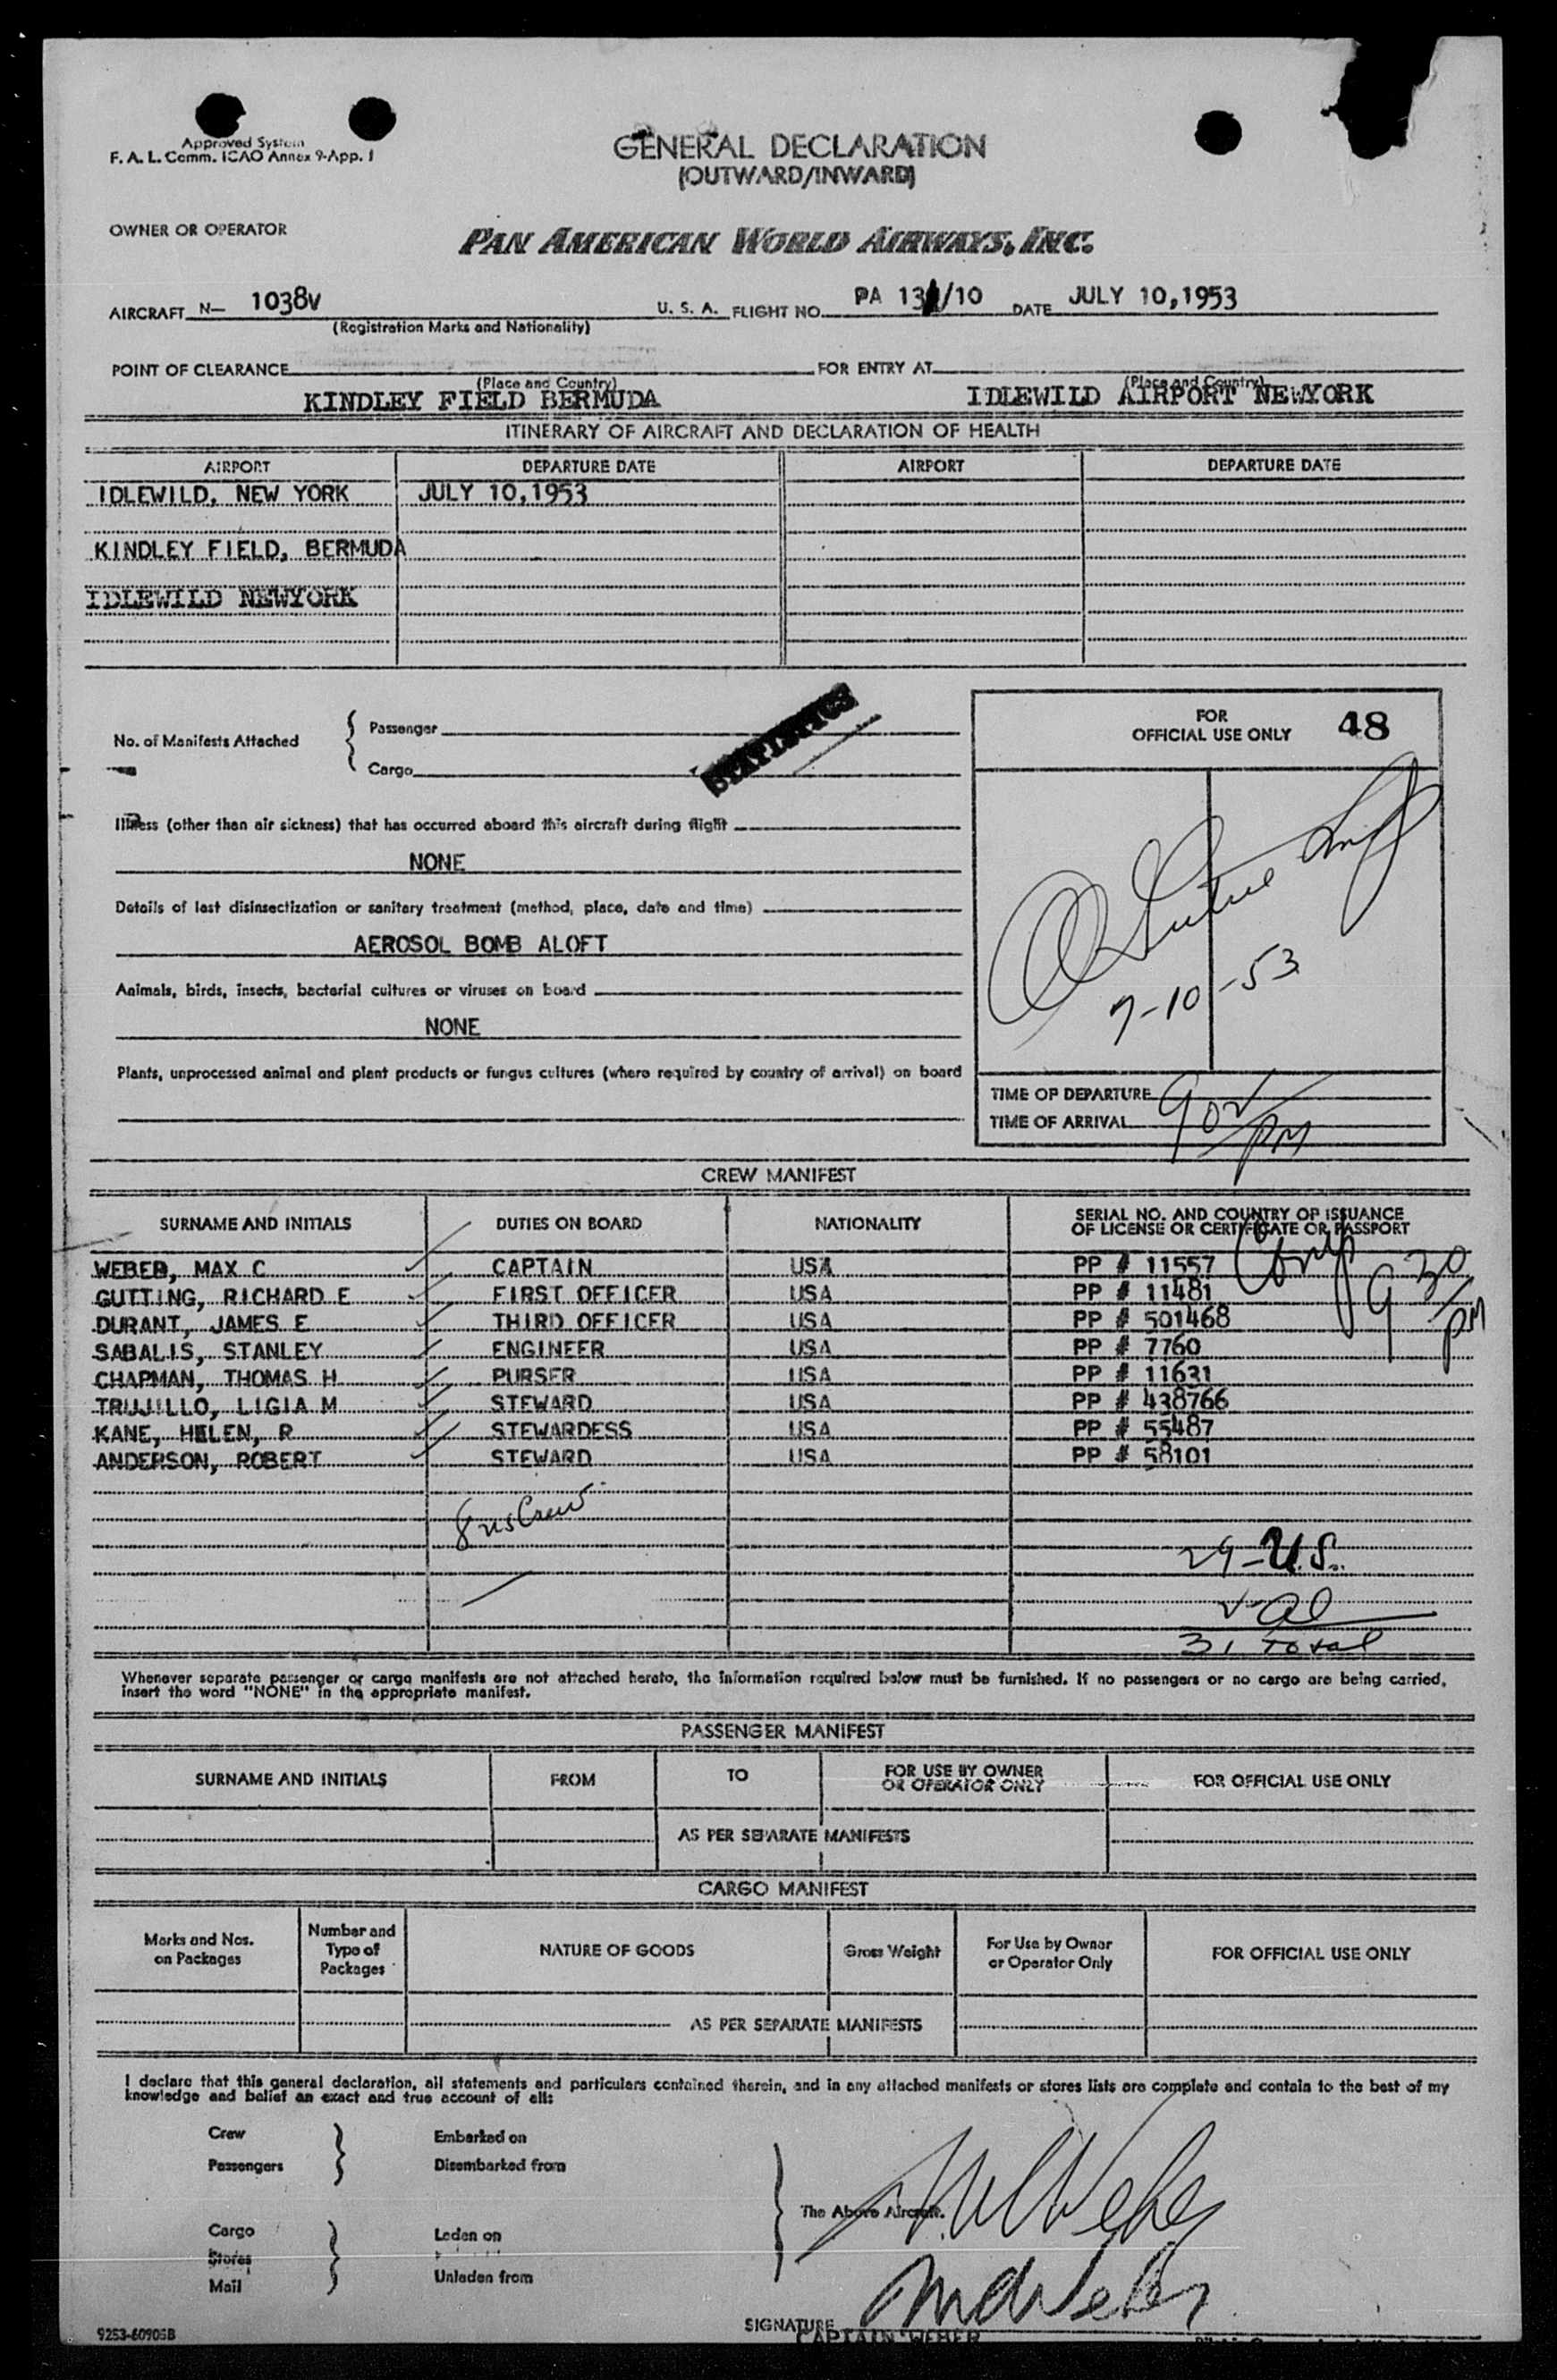 Approved System
F. A. L. Comm. ICAO Annex 9-App. 1
GENERAL DECLARATION
(OUTWARD/INWARD)
OWNER OR OPERATOR
PAN AMERICAN WORLD AIRWAYS, INC.
AIRCRAFT N— 1038V U. S. A. FLIGHT NO. PA 13 /10 DATE JULY 10,1953
(Registration Marks and Nationality)
POINT OF CLEARANCE FOR ENTRY AT
(Place and Country) (Place and Country)
KINDLEY FIELD BERMUDA IDLEWILD AIRPORT NEWYORK
ITINERARY OF AIRCRAFT AND DECLARATION OF HEALTH
AIRPORT DEPARTURE DATE AIRPORT DEPARTURE DATE
IDLEWILD, NEW YORK JULY 10,1953
KINDLEY FIELD, BERMUDA
IDLEWILD NEWYORK
No. of Manifests Attached
Passenger
Cargo
STATISTICS
FOR
OFFICIAL USE ONLY 48
Illness (other than air sickness) that has occurred aboard this aircraft during flight
NONE
Details of last disinsectization or sanitary treatment (method, place, date and time)
AEROSOL BOMB ALOFT
Animals, birds, insects, bacterial cultures or viruses on board
NONE
Plants, unprocessed animal and plant products or fungus cultures (where required by country of arrival) on board
7-10-53
TIME OF DEPARTURE
TIME OF ARRIVAL 902 PM
CREW MANIFEST
SURNAME AND INITIALS DUTIES ON BOARD NATIONALITY SERIAL NO. AND COUNTRY OF ISSUANCE
OF LICENSE OR CERTIFICATE OR PASSPORT
WEBER, MAX C CAPTAIN USA PP # 11557
GUTTING, RICHARD E FIRST OFFICER USA PP # 11481
DURANT, JAMES E THIRD OFFICER USA PP # 501468
SABALIS, STANLEY ENGINEER USA PP # 7760
CHAPMAN, THOMAS H PURSER USA PP # 11631
TRUJILLO, LIGIA M STEWARD USA PP # 438766
KANE, HELEN, R STEWARDESS USA PP # 55487
ANDERSON, ROBERT STEWARD USA PP # 58101
Comp 930 PM
8 us Crew
29-U.S.
2-al
31 Total
Whenever separate passenger or cargo manifests are not attached hereto, the information required below must be furnished. If no passengers or no cargo are being carried,
insert the word "NONE" in the appropriate manifest.
PASSENGER MANIFEST
SURNAME AND INITIALS FROM TO FOR USE BY OWNER
OR OPERATOR ONLY FOR OFFICIAL USE ONLY
AS PER SEPARATE MANIFESTS
CARGO MANIFEST
Marks and Nos.
on Packages
Number and
Type of
Packages
NATURE OF GOODS
Gross Weight
For Use by Owner
or Operator Only
FOR OFFICIAL USE ONLY
AS PER SEPARATE MANIFESTS
I declare that this general declaration, all statements and particulars contained therein, and in any attached manifests or stores lists are complete and contain to the best of my
knowledge and belief an exact and true account of all:
Crew Embarked on
Passengers Disembarked from
The Above Aircraft.
Cargo Laden on
Stores
Mail Unladen from
SIGNATURE
CAPTAIN WEBER
9253-60905B